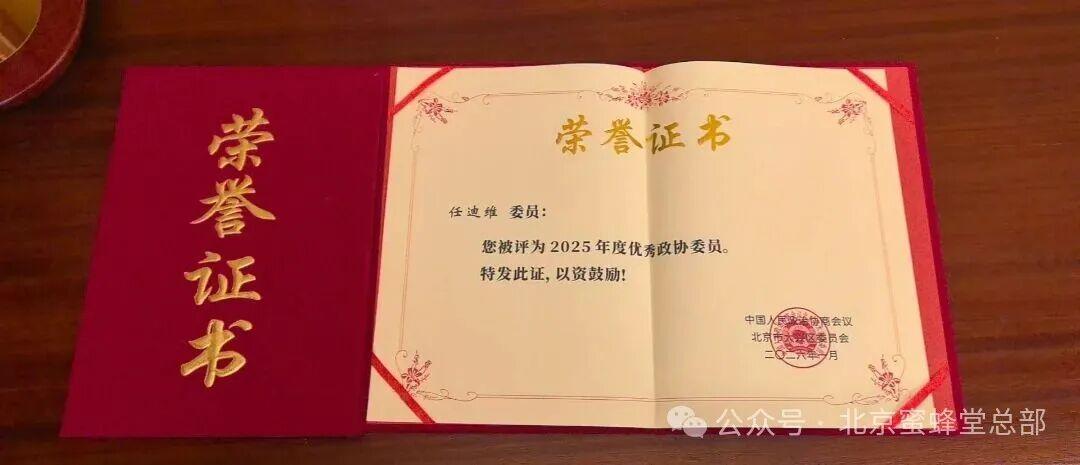 荣誉证书
荣誉证书
任迪维 委员：
您被评为2025年度优秀政协委员。
特发此证，以资鼓励！
中国人民政治协商会议
北京市大兴区委员会
二〇二六年一月
公众号·北京蜜蜂堂总部